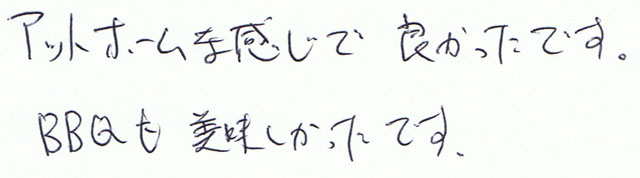 アットホームな感じで 良かったです。
BBQも 美味しかったです。